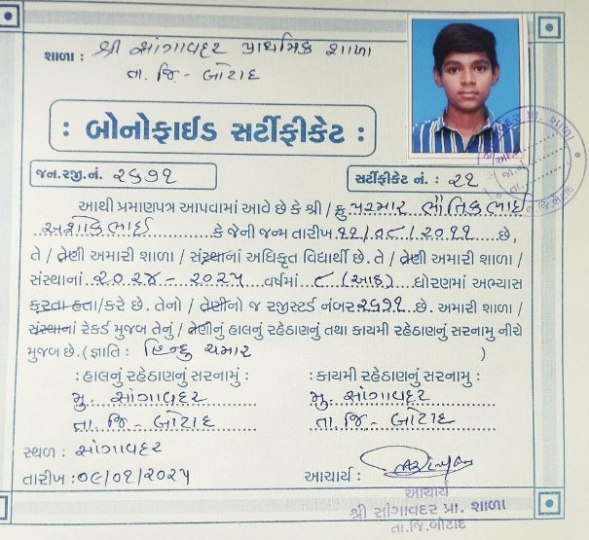 શાળા : શ્રી સાંગાવદર પ્રાથમિક શાળા
તા. જિ - બોટાદ
: બોનોફાઈડ સર્ટીફીકેટ :
જન.રજી.નં. ૨૬૭૧
સર્ટીફીકેટ નં. : ૨૧
આથી પ્રમાણપત્ર આપવામાં આવે છે કે શ્રી / કુ પરમાર ભૌતિક ભાઈ
અશોકભાઈ કે જેની જન્મ તારીખ ૧૧/૦૮/૨૦૧૧ છે,
તે / તેણી અમારી શાળા / સંસ્થાનાં અધિકૃત વિદ્યાર્થી છે. તે / તેણી અમારી શાળા /
સંસ્થાનાં ૨૦૨૪ - ૨૦૨૫ વર્ષમાં ૮ (આઠ) ધોરણમાં અભ્યાસ
કરતા હતા/કરે છે. તેનો / તેણીનો જ રજીસ્ટર્ડ નંબર ૨૬૭૧ છે. અમારી શાળા /
સંસ્થાનાં રેકર્ડ મુજબ તેનું / તેણીનું હાલનું રહેઠાણનું તથા કાયમી રહેઠાણનું સરનામુ નીચે
મુજબ છે.(જ્ઞાતિ : હિન્દુ ચમાર )
: હાલનું રહેઠાણનું સરનામું :
: કાયમી રહેઠાણનું સરનામુ :
મુ. સાંગાવદર
મુ. સાંગાવદર
તા. જિ - બોટાદ
તા. જિ - બોટાદ
સ્થળ : સાંગાવદર
તારીખ : ૦૯/૦૧/૨૦૨૫
આચાર્ય :
આચાર્ય
શ્રી સાંગાવદર પ્રા. શાળા
તા.જિ.બોટાદ